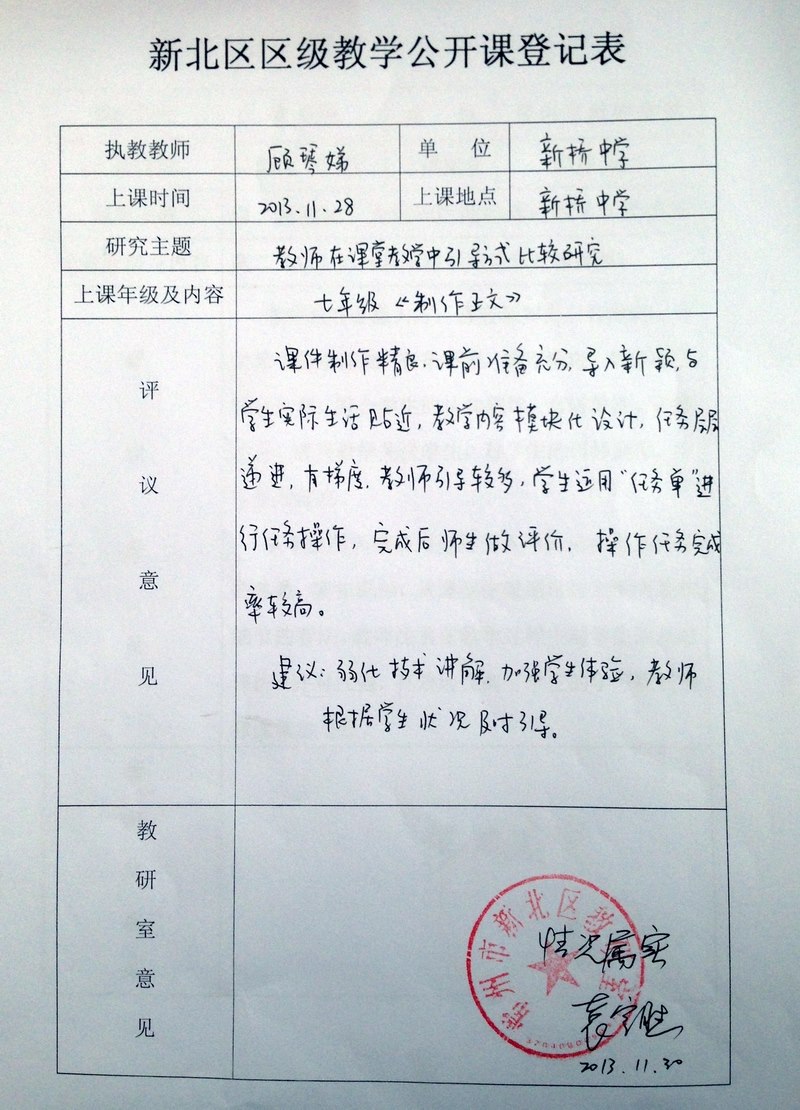 新北区区级教学公开课登记表
执教教师 顾琴娣 单 位 新桥中学
上课时间 2013.11.28 上课地点 新桥中学
研究主题 教师在课堂教学中引导方式比较研究
上课年级及内容 七年级《制作正文》
评议意见
课件制作精良,课前准备充分,导入新颖,与
学生实际生活贴近,教学内容模块化设计,任务层层
递进,有梯度,教师引导较多,学生运用“任务单”进
行任务操作,完成后师生做评价,操作任务完成
率较高。
建议:弱化技术讲解,加强学生体验,教师
根据学生状况及时引导。
教研室意见
常州市新北区教研室
情况属实
2013.11.30